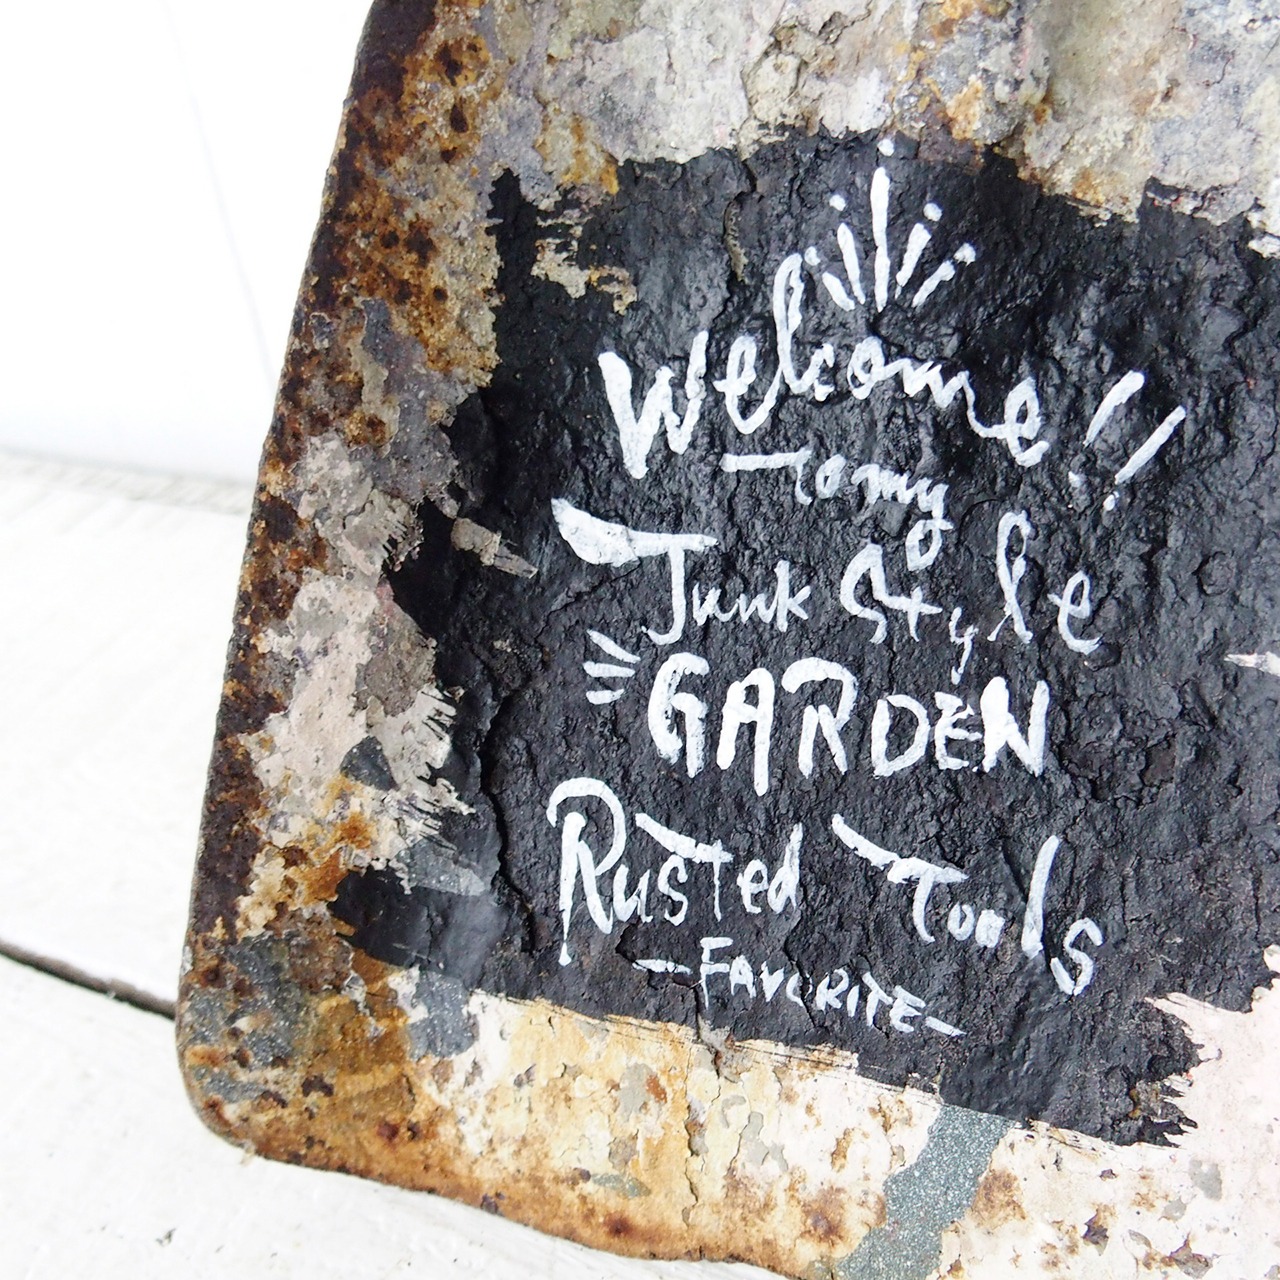 Welcome!!
To my
Junk Style
GARDEN
Rusted Tools
-FAVORITE-